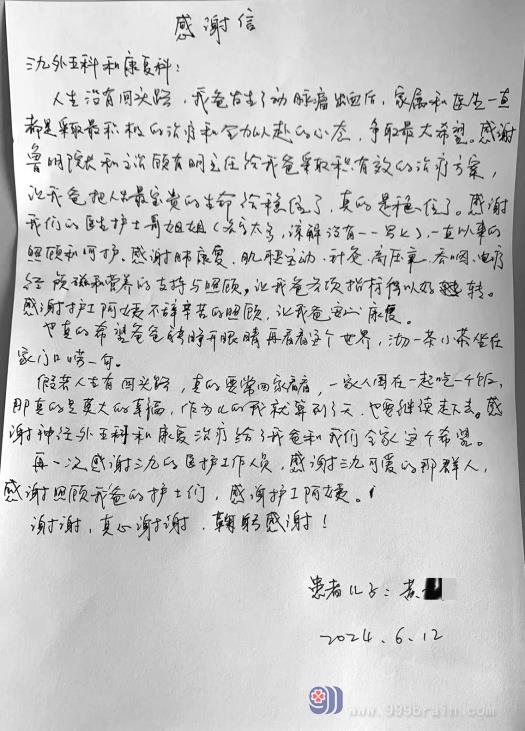 感谢信
三九外五科和康复科：
人生没有回头路，我爸发生了动脉瘤出血后，家属和医生一直
都是采取最积极的治疗和全力以赴的心态，争取最大希望。感谢
鲁明院长和主治顾有明主任给我爸采取积极有效的治疗方案，
让我爸把人出最宝贵的生命给稳住了，真的是稳住了。感谢
我们的医生护士哥姐姐（名字太多，谅解没有一一写上）一直以来的
照顾和呵护。感谢肺康复、肌肢运动、针灸、高压氧、吞咽、电疗
经颅磁和营养的支持与照顾，让我爸各项指标得以好转。
感谢护工阿姨不辞辛苦的照顾，让我爸安心康复。
也真的希望爸爸能睁开眼睛再看看这个世界，沏一茶小茶坐在
家门口唠一句。
假若人生有回头路，真的要常回家看看，一家人围在一起吃一个饭，
那真的是莫大的幸福，作为儿的我就算到了天，也要继续走下去。感
谢神经外五科和康复治疗给了我爸和我们全家这个希望。
再一次感谢三九的医护工作人员，感谢三九可爱的那群人，
感谢照顾我爸的护士们，感谢护工阿姨。
谢谢，真心谢谢，鞠躬感谢！
患者儿子：黄
2024.6.12
www.999brain.com